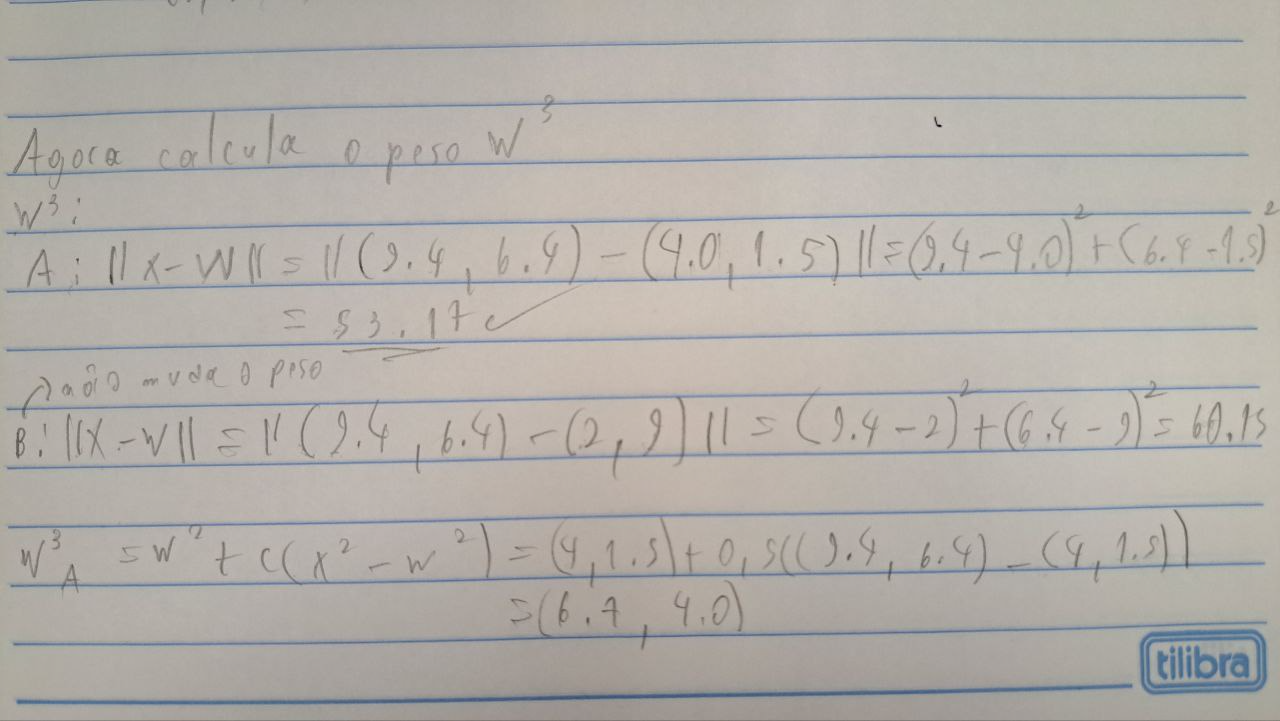 Agora calcula o peso W³
W³:
A: ||X-W|| = ||(9.4, 6.4) - (4.0, 1.5)|| = (9.4-4.0)² + (6.4-1.5)²
= 53.17
não muda o peso
B: ||X-W|| = ||(9.4, 6.4) - (2, 9)|| = (9.4-2)² + (6.4-9)² = 60.15
W³A = W² + c(X² - W²) = (4, 1.5) + 0,5((9.4, 6.4) - (4, 1.5))
= (6.7, 4.0)
tilibra